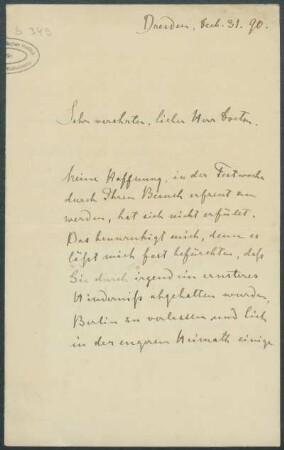 S 349
Dresden, Decb. 31. 90.
Sehr verehrter, lieber Herr Doctor.
Meine Hoffnung, in der Festwoche
durch Ihren Besuch erfreut zu
werden, hat sich nicht erfüllt.
Das beunruhigt mich, denn es
läßt mich fast befürchten, daß
Sie durch irgend ein ernsteres
Hinderniß abgehalten wurden,
Berlin zu verlassen und sich
in der engeren Heimath einige